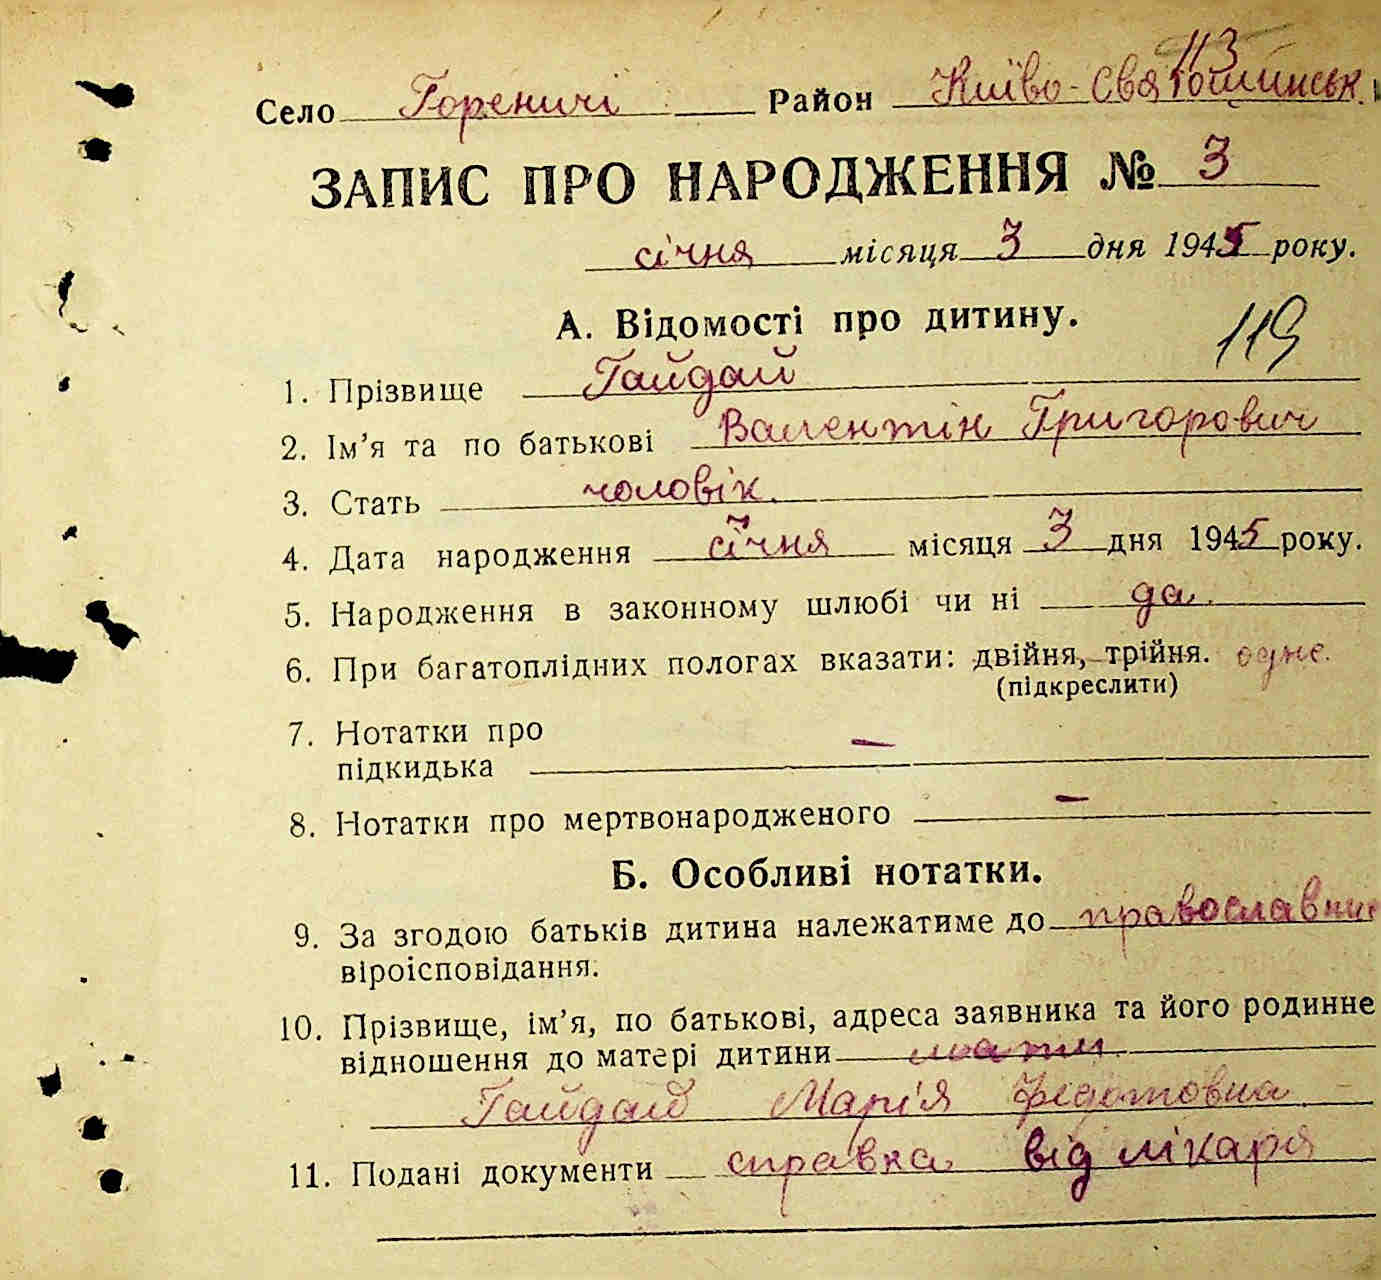 113
Село Гореничі Район Київо-Святошинськ.
ЗАПИС ПРО НАРОДЖЕННЯ № 3
січня місяця 3 дня 1945 року.
А. Відомості про дитину.
119
1. Прізвище Гайдай
2. Ім'я та по батькові Валентін Григорович
3. Стать чоловік.
4. Дата народження січня місяця 3 дня 1945 року.
5. Народження в законному шлюбі чи ні да.
6. При багатоплідних пологах вказати: двійня, трійня. одне.
(підкреслити)
7. Нотатки про
підкидька –
8. Нотатки про мертвонародженого –
Б. Особливі нотатки.
9. За згодою батьків дитина належатиме до православни
віроісповідання.
10. Прізвище, ім'я, по батькові, адреса заявника та його родинне
відношення до матері дитини мати.
Гайдай Марія Федотовна.
11. Подані документи справка від лікаря